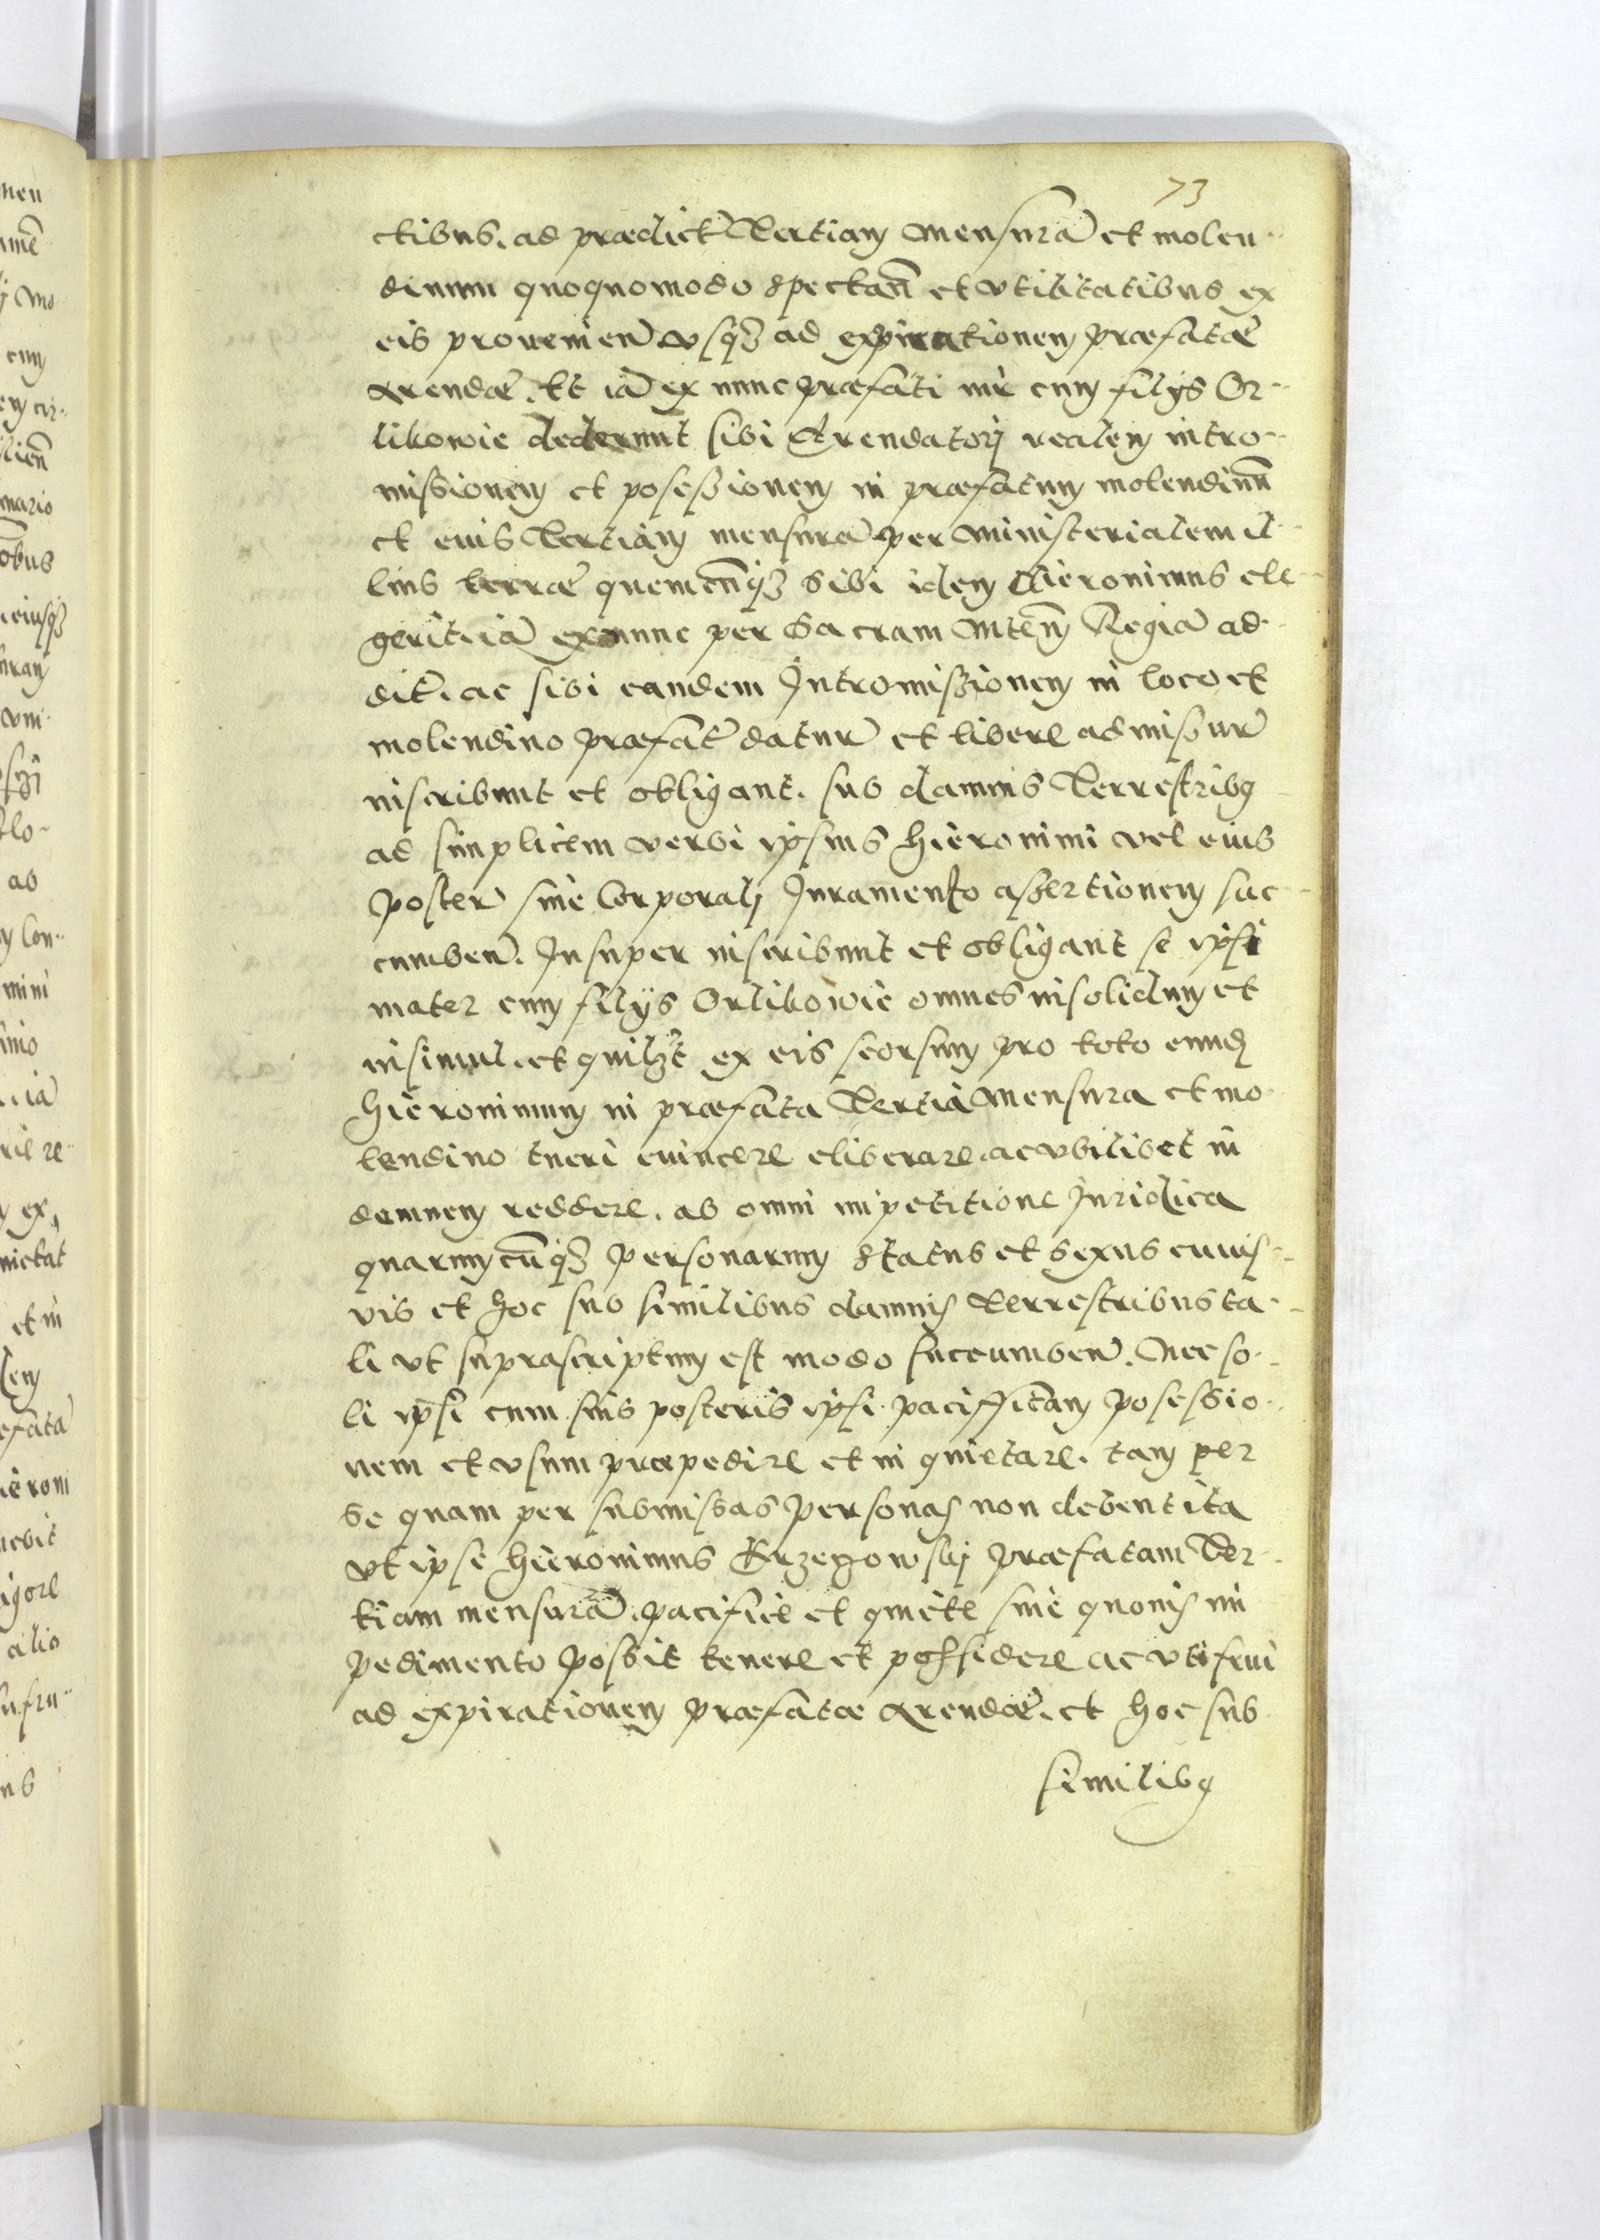 73
ctibus. ad prædict Tertiam Mensurã et molen
dinum quoquomodo spectañ et vtilitatibus ex
eis prouenieñ vsq3 ad expirationem præfatæ
Arendæ. Et iã ex nunc præfati mr̃ cum filys Or
likowie dederunt sibi Arendatorj realem intro
missionem et posessionem in præfatum molendinũ
et eius Tertiam mensurã per Ministerialem il
lius terræ quemcũq3 sibi idem Hieronimus ele
gerit iã ex nunc per Sacram Mtem̃ Regiã ad
dit̃. ac sibi eandem Intromissionem in loco et
molendino præfat̃ datur̃ et libere admissur̃
inscribunt et obligant. sub damnis Terrestribus
ad simplicem verbi ipsius Hieronimi vel eius
poster̃ sine Corporalj Iuramento assertionem suc
cumbeñ. Insuper inscribunt et obligant se ipsi
mater cum filys Orlikowie omnes insolidum et
insimul. et quilz̃t ex eis seorsum pro toto eund
Hieronimum in præfata Tertia Mensura et mo
lendino tueri euincere eliberare. ac vbilibet in
demnem reddere. ab omni impetitione Iuridica
quarumcũq3 personarum status et sexus cuius
vis et hoc sub similibus damnis Terrestribus ta
li vt suprascriptum est modo succumbeñ. Nec so
li ipsi cum suis posteris ipsi pacifficam posessio
nem et vsum præpedire et in quietare. tam per
se quam per submissas personas non debent ita
vt ipse Hieronimus præfatam Ter
tiam mensurã. pacifice et quiete sine quouis im
pedimento possit tenere et possidere ac vti frui
ad expirationem præfatæ Arendæ. et hoc sub
similibus